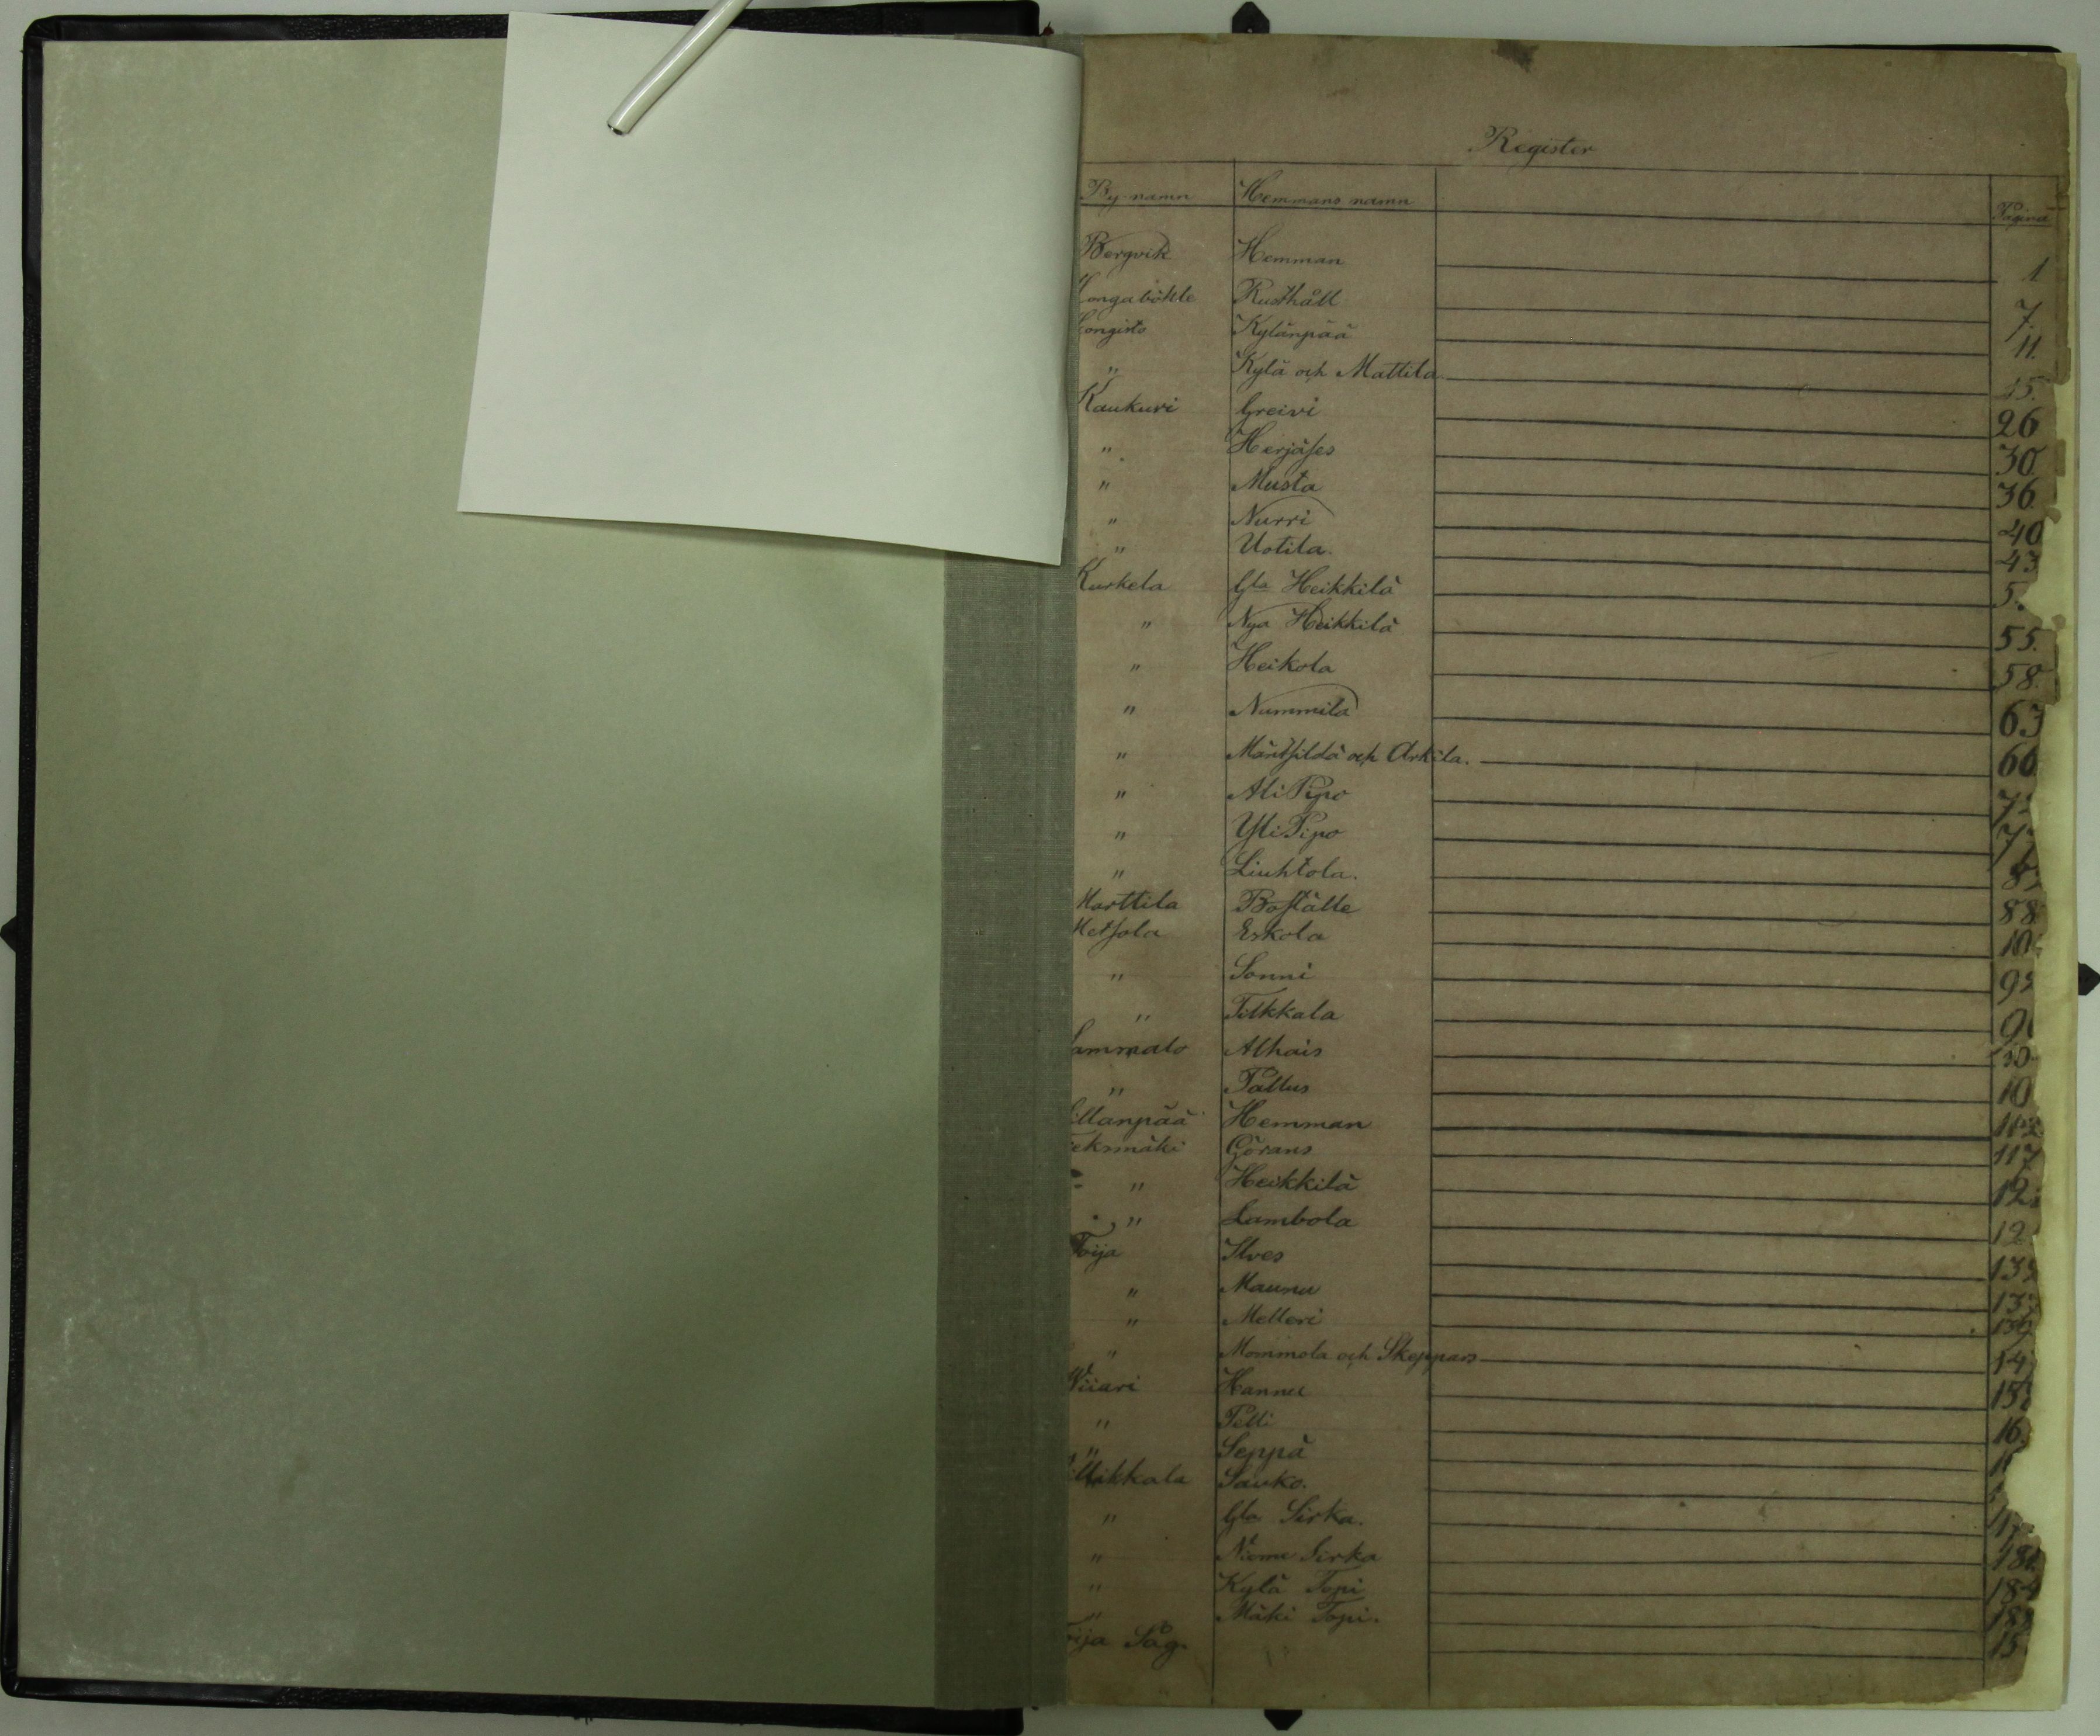 Register
By-namn Hemmans namn Pagina
Bergvik Hemman 1
Longaböhle Rusthåll 7.
Kylänpää 11.
" Kylä och Mattila 15.
Kaukuri Greivi 26
" Herjäses 30.
" Musta 36
" Nurri 40
" Uotila. 43
Kurkela Gla Heikkilä 5
" Nya Heikkilä 55.
" Heikola 58.
" Nummila 63
" och Arkila. 66
" Ali Pipo 7
" Yli Pipo 7
" Liuhtola. 8
Marttila Boställe 88
Metsola Eskola 10
" Sonni 9
" Tilkkala 9
ammalo Alhais 10
" Pällus 10
illanpää Hemman 112
eksmäki Görans 117
" Heikkilä 12
" Lambola 12
Toija Ilves 13
" Maunu 13
" Melleri 139
" Mommola och Skeppars 14
Wiiari Hannu 15
" Pelli 16
" Seppä 1
illikkala Sauko.
" Gla Sirka. 1
" Niemi Sirka 18
" Kylä Topi 184
" Mäki Topi. 18
ija Såg. 15